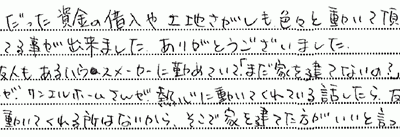 だった資金の借入や土地さがしも色々と動いて頂
てる事が出来ました。ありがとうございました。
友人もあるハウスメーカーに勤めていて「まだ家を建てないの?」
が、クンエルホームさんが熱心に動いてくれている話したら、友
動いてくれる所はないから、そこで家を建てた方がいいと言っ